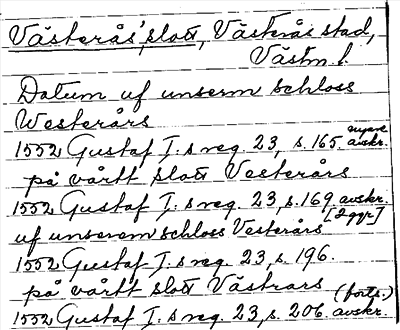 Västerås, slott, Västerås stad,
Västm. l.
Datum uf unserm schloss
Westerårs
1552 Gustaf I:s reg. 23, s. 165 nyare avskr.
på vårtt slott Vesterårs
1552 Gustaf I:s reg. 23, s. 169 avskr.
[2 ggr]
uf unserem schloss Vesterårs
1552 Gustaf I:s reg. 23, s. 196.
på vårtt slott Västrars
(forts.)
1552 Gustaf I:s reg. 23, s. 206 avskr.